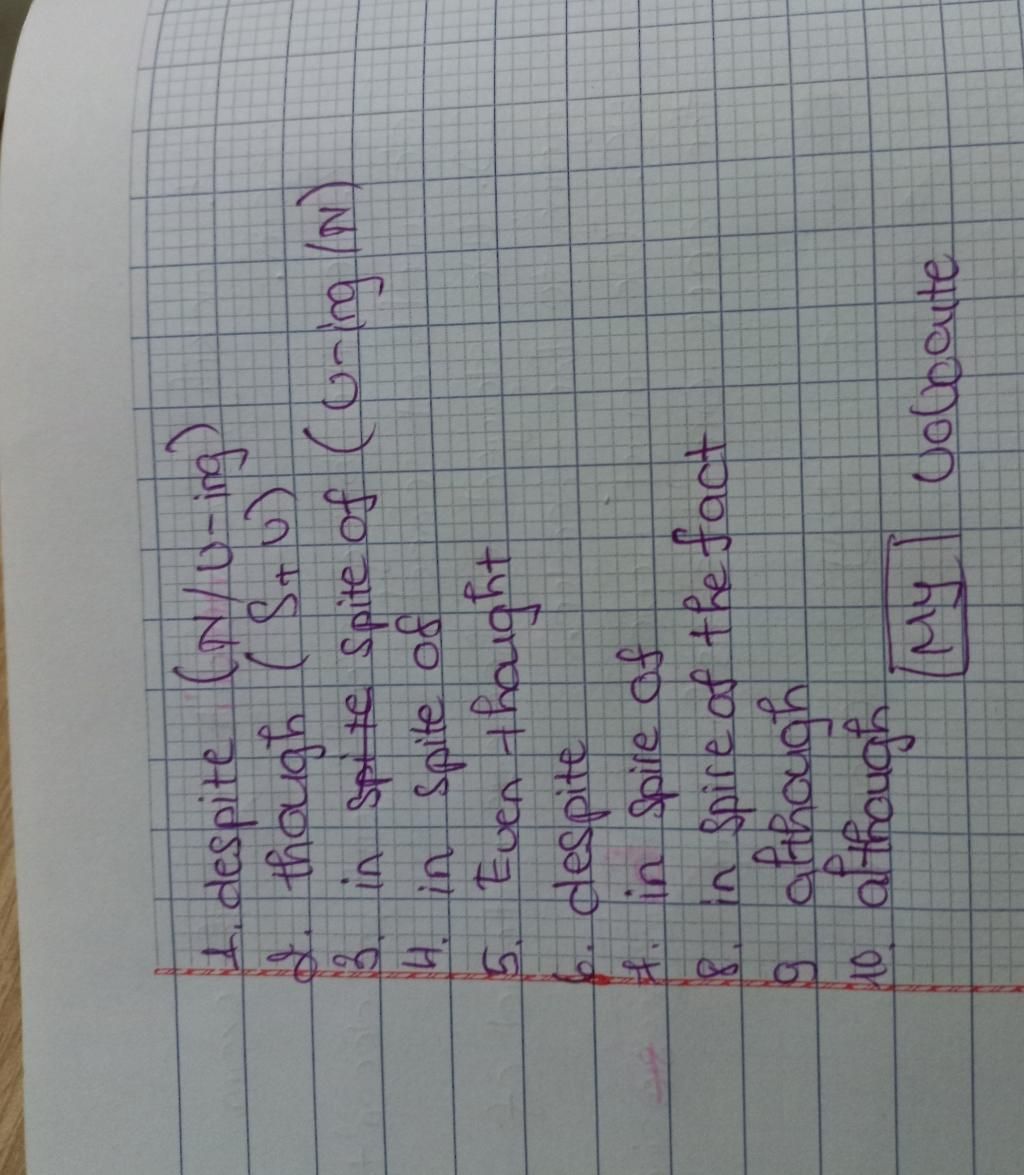 1. despite (N/v-ing)
2. though (S+v)
3. in spite spite of (v-ing/N)
4. in spite of
5. Even thought
6. despite
7. in spite of
8. in spite of the fact
9 although
10. although
My